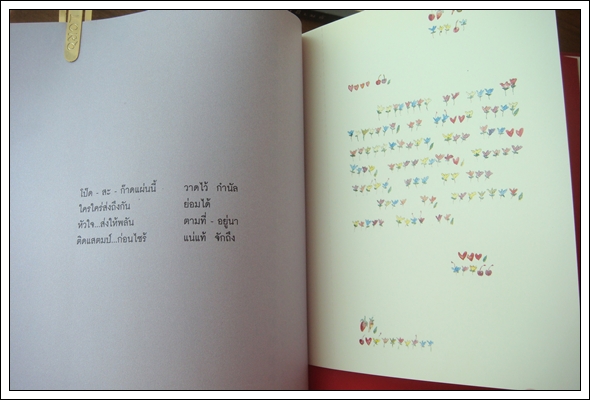 โป๊ด - สะ - ก๊าดแผ่นนี้ วาดไว้ กำนัล
ใครใคร่ส่งถึงกัน ย่อมได้
หัวใจ...ส่งให้พลัน ตามที่ - อยู่นา
ติดแสตมป์...ก่อนไซร้ แน่แท้ จักถึง